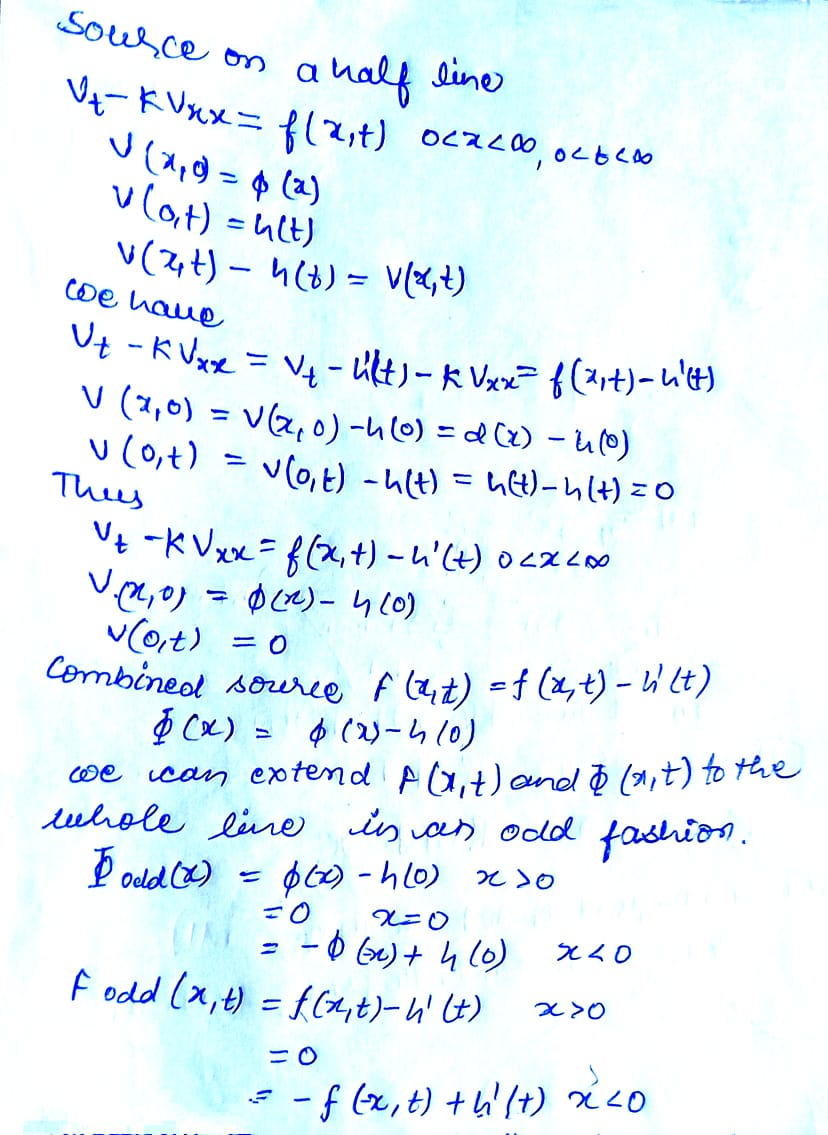 Source on a half line
V_t - K V_xx = f(x,t) 0<x<∞, 0<t<∞
V(x,0) = φ(x)
V(0,t) = h(t)
V(x,t) - h(t) = V(x,t)
we have
V_t - K V_xx = V_t - h'(t) - K V_xx = f(x,t) - h'(t)
V(x,0) = V(x,0) - h(0) = φ(x) - h(0)
V(0,t) = V(0,t) - h(t) = h(t) - h(t) = 0
Thus
V_t - K V_xx = f(x,t) - h'(t) 0<x<∞
V(x,0) = φ(x) - h(0)
V(0,t) = 0
Combined source F(x,t) = f(x,t) - h'(t)
Φ(x) = φ(x) - h(0)
we can extend F(x,t) and Φ(x,t) to the
whole line in an odd fashion.
Φ odd(x) = φ(x) - h(0) x>0
= 0 x=0
= -φ(x) + h(0) x<0
F odd (x,t) = f(x,t) - h'(t) x>0
= 0
= -f(-x,t) + h'(t) x<0